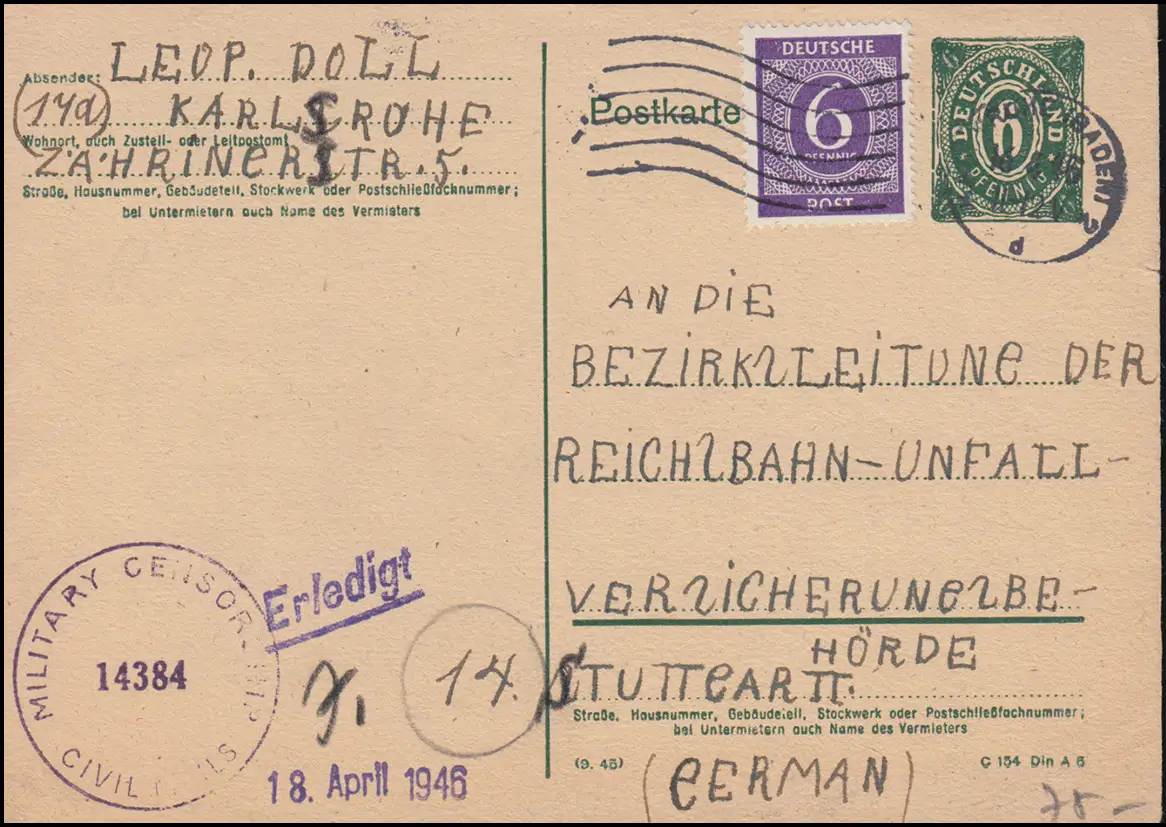 Absender: LEOP. DOLL
(17a) KARLSROHE
Wohnort, auch Zustell- oder Leitpostamt
ZÄHRINERSTR. 5.
Straße, Hausnummer, Gebäudeteil, Stockwerk oder Postschließfachnummer;
bei Untermietern auch Name des Vermieters
Postkarte
DEUTSCHE
6
PFENNIG
POST
DEUTSCHLAND
6
PFENNIG
(BADEN) 2
d
AN DIE
BEZIRKSLEITUNG DER
REICHSBAHN-UNFALL-
VERSICHERUNGSBE-
HÖRDE
STUTTGART
Straße, Hausnummer, Gebäudeteil, Stockwerk oder Postschließfachnummer;
bei Untermietern auch Name des Vermieters
(9. 45)
(GERMAN)
C 154 Din A 6
78-
MILITARY CENSORSHIP
14384
CIVIL MAILS
Erledigt
14.
18. April 1946